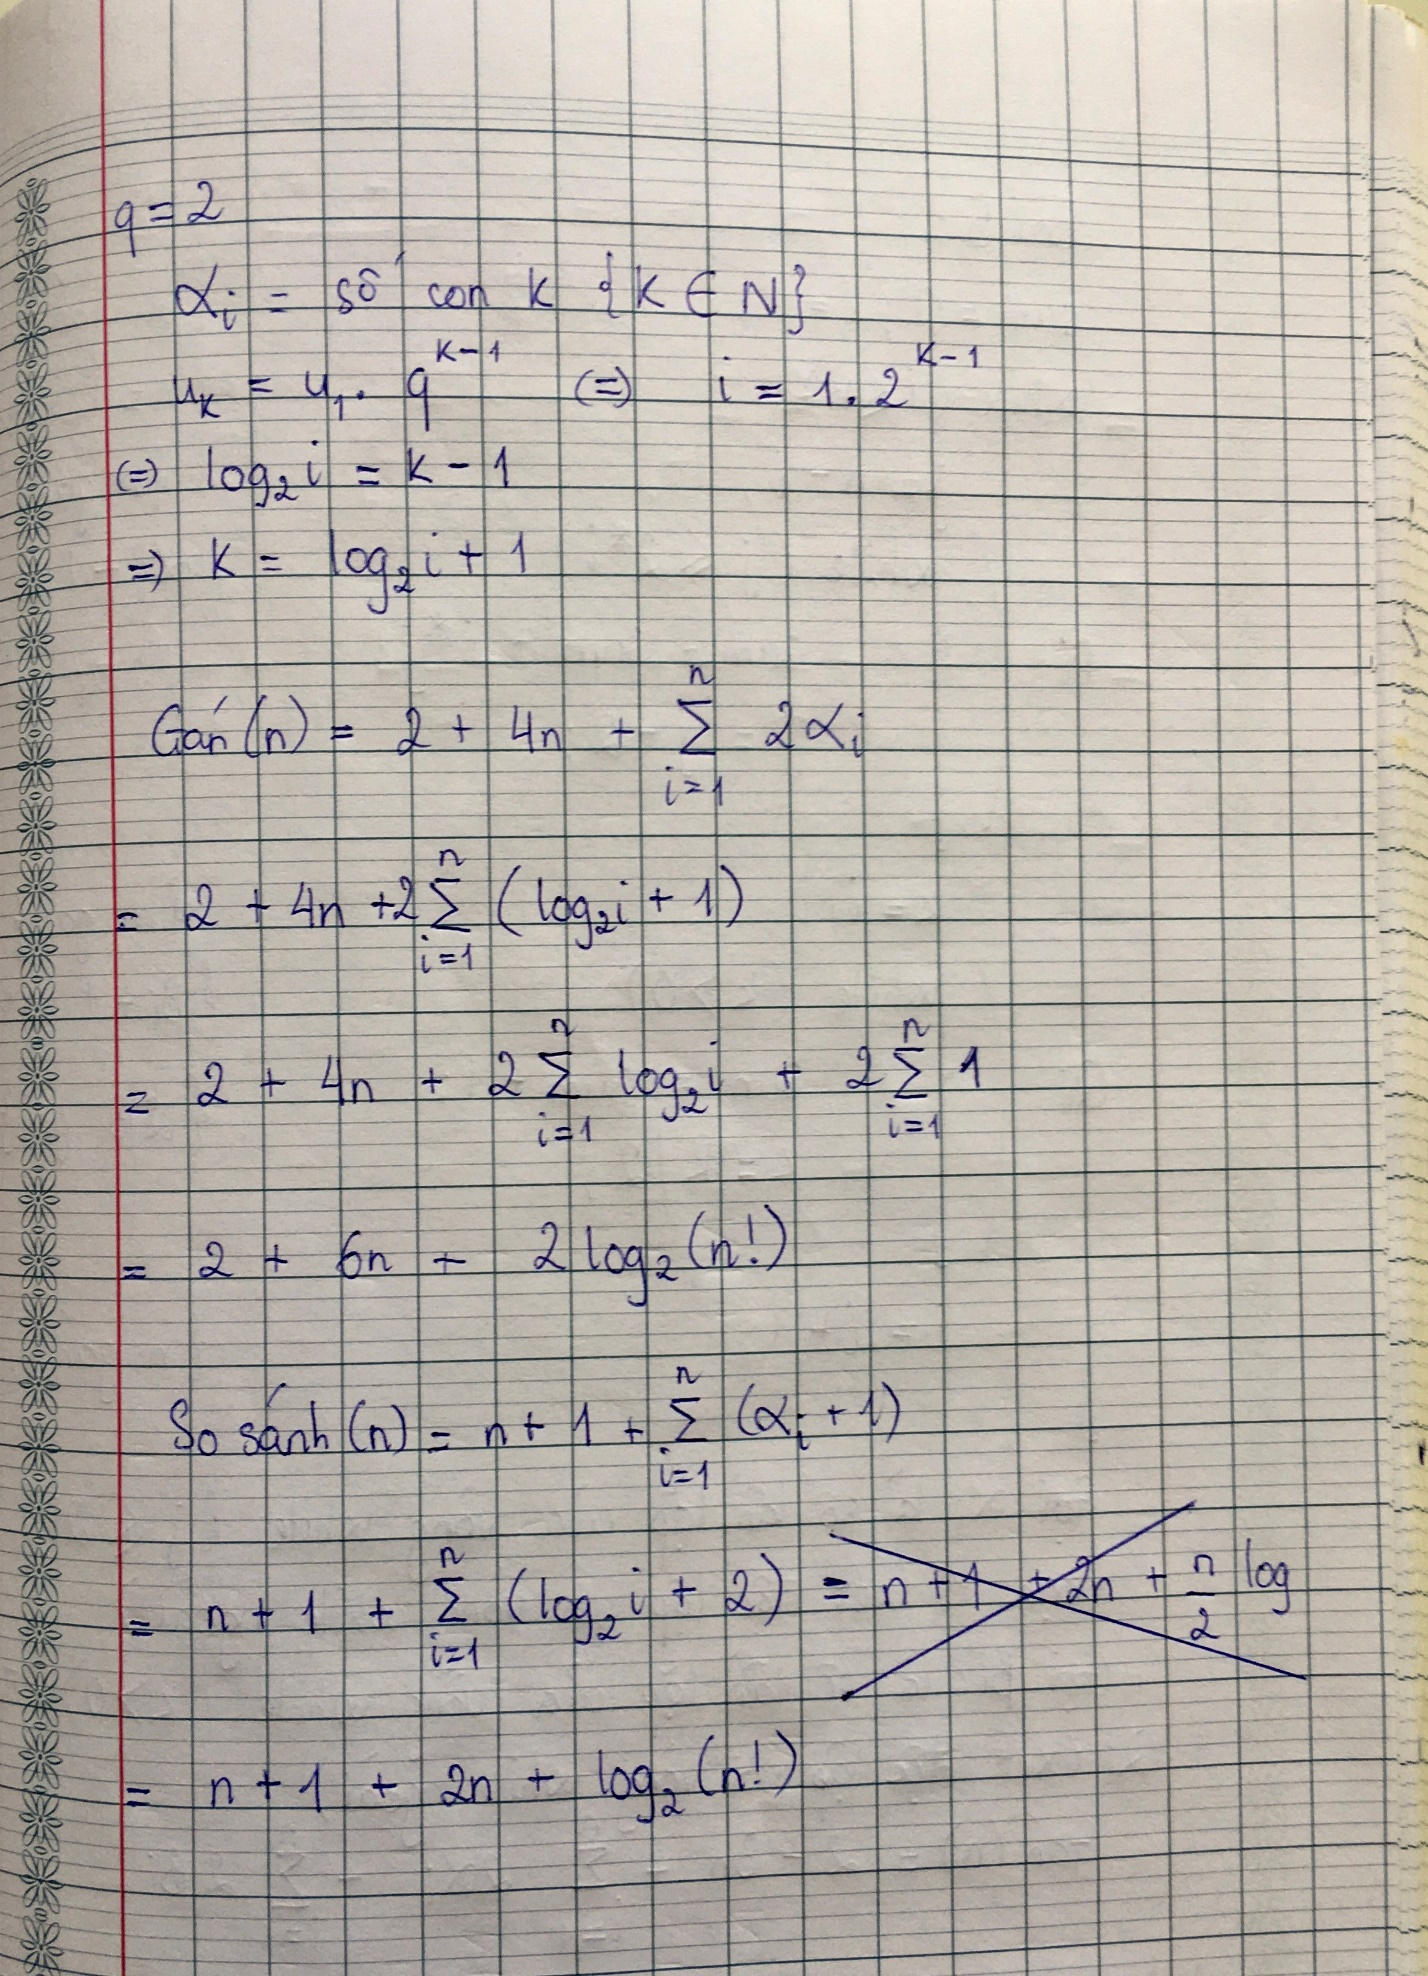 q = 2
αi = số con k {k ∈ N}
uₖ = u₁. q^(k-1) (=) i = 1.2^(k-1)
(=) log₂i = k - 1
=) k = log₂i + 1
Gán(n) = 2 + 4n + ∑_{i=1}^{n} 2αi
= 2 + 4n + 2∑_{i=1}^{n} (log₂i + 1)
= 2 + 4n + 2∑_{i=1}^{n} log₂i + 2∑_{i=1}^{n} 1
= 2 + 6n + 2log₂(n!)
So sánh(n) = n + 1 + ∑_{i=1}^{n} (αi + 1)
= n + 1 + ∑_{i=1}^{n} (log₂i + 2) = n + 1 + 2n + n/2 log
= n + 1 + 2n + log₂(n!)